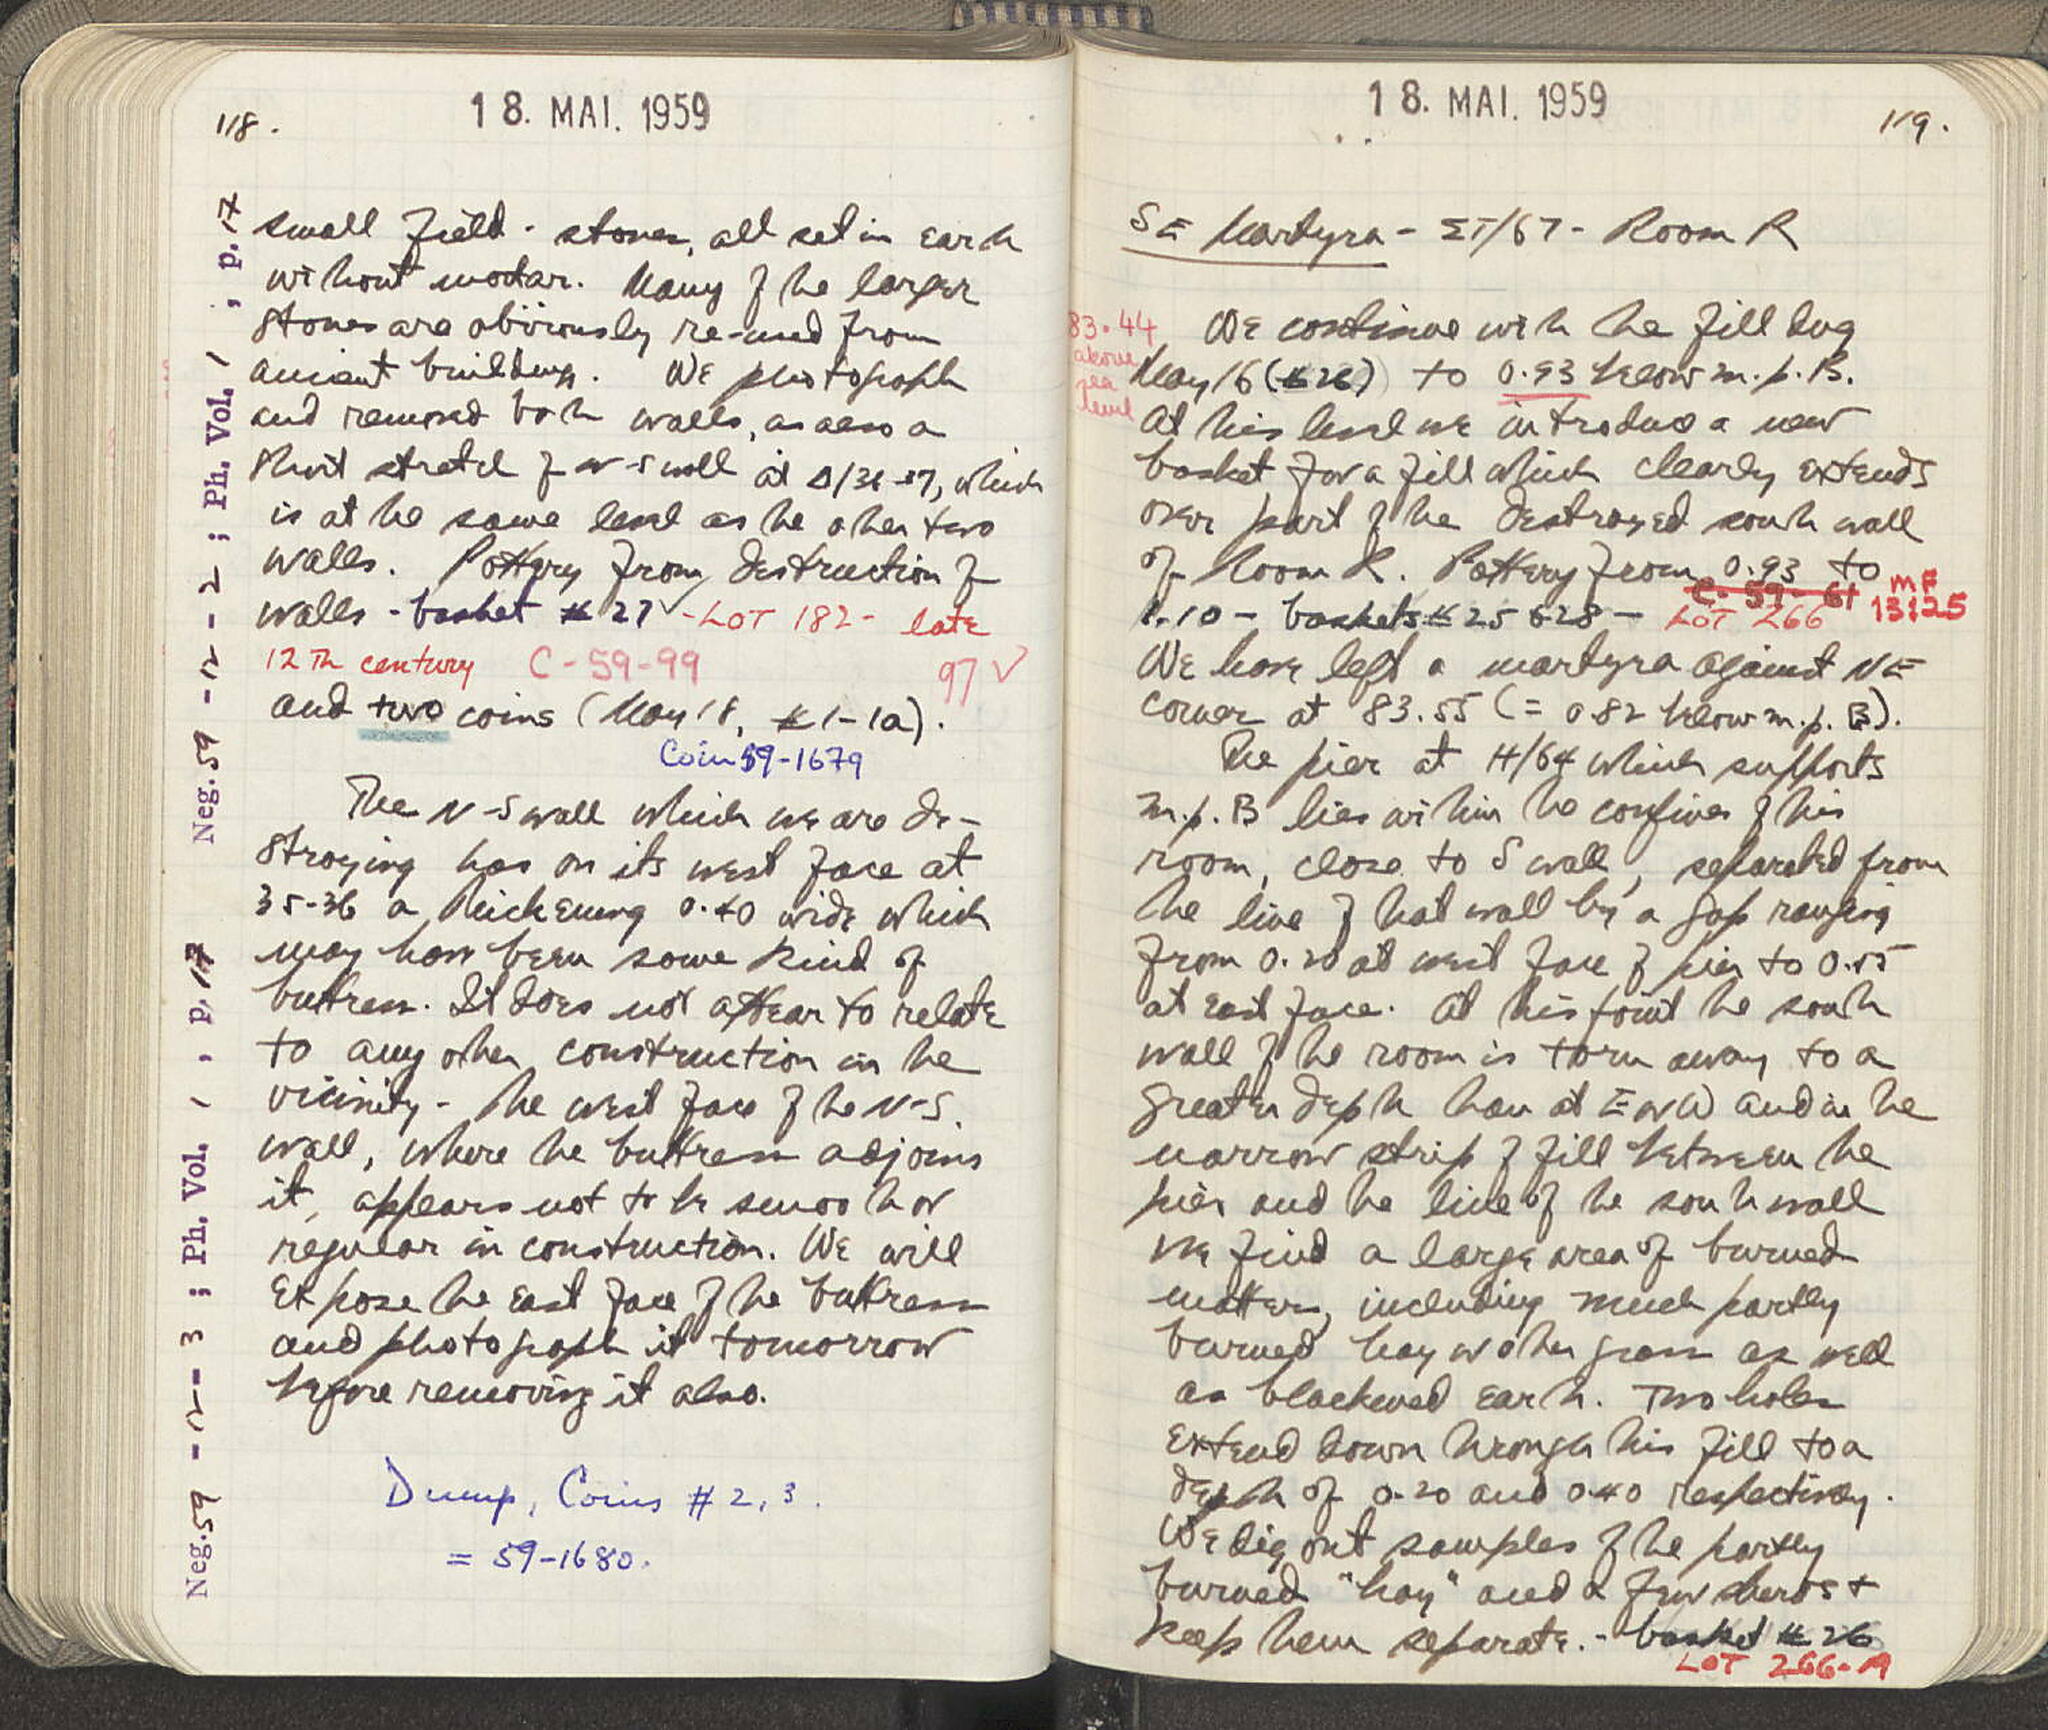 118.
18. MAI. 1959
small field-stones, all set in earth
without mortar. Many of the larger
stones are obviously re-used from
ancient buildings. We photograph
and removed both walls, as also a
short stretch of N-S wall at Δ/36-37, which
is at the same level as the other two
walls. Pottery from destruction of
walls - basket #27 ✓ - LOT 182 - late
12th century C-59-99 97 ✓
and two coins (May 18, #1-1a).
Coin 59-1679
The N-S wall which we are de-
stroying has on its west face at
35-36 a thickening 0.40 wide which
may have been some kind of
buttress. It does not appear to relate
to any other construction in the
vicinity - the west face of the N-S
wall, where the buttress adjoins
it, appears not to be smooth or
regular in construction. We will
expose the east face of the buttress
and photograph it tomorrow
before removing it also.
Dump, Coins #2, 3.
= 59-1680.
Neg. 59 - 12 - 2 ; Ph. Vol. 1 , p. 17
Neg. 59 - 12 - 3 ; Ph. Vol. 1 , p. 17
18. MAI. 1959
119.
SE Martyra - ΣT/67 - Room R
83.44
above
sea
level
We continue with the fill dug
May 16 (#26) to 0.93 below m.p. B.
At this level we introduce a new
basket for a fill which clearly extends
over part of the destroyed south wall
of Room R. Pottery from 0.93 to
C-59-61 MF
1.10 - baskets #25 & 28 - LOT 266 13125
We have left a martyra against NE
corner at 83.55 (= 0.82 below m.p. B).
The pier at H/64 which supports
m.p. B lies within the confines of this
room, close to S wall, separated from
the line of that wall by a gap ranging
from 0.20 at west face of pier to 0.15
at east face. At this point the south
wall of the room is torn away to a
greater depth than at E or W and in the
narrow strip of fill between the
pier and the line of the south wall
we find a large area of burned
matter, including much partly
burned hay or other grass as well
as blackened earth. Two holes
extend down through this fill to a
depth of 0.20 and 0.40 respectively.
We dig out samples of the partly
burned "hay" and a few sherds +
keep them separate. - basket #26
LOT 266-A